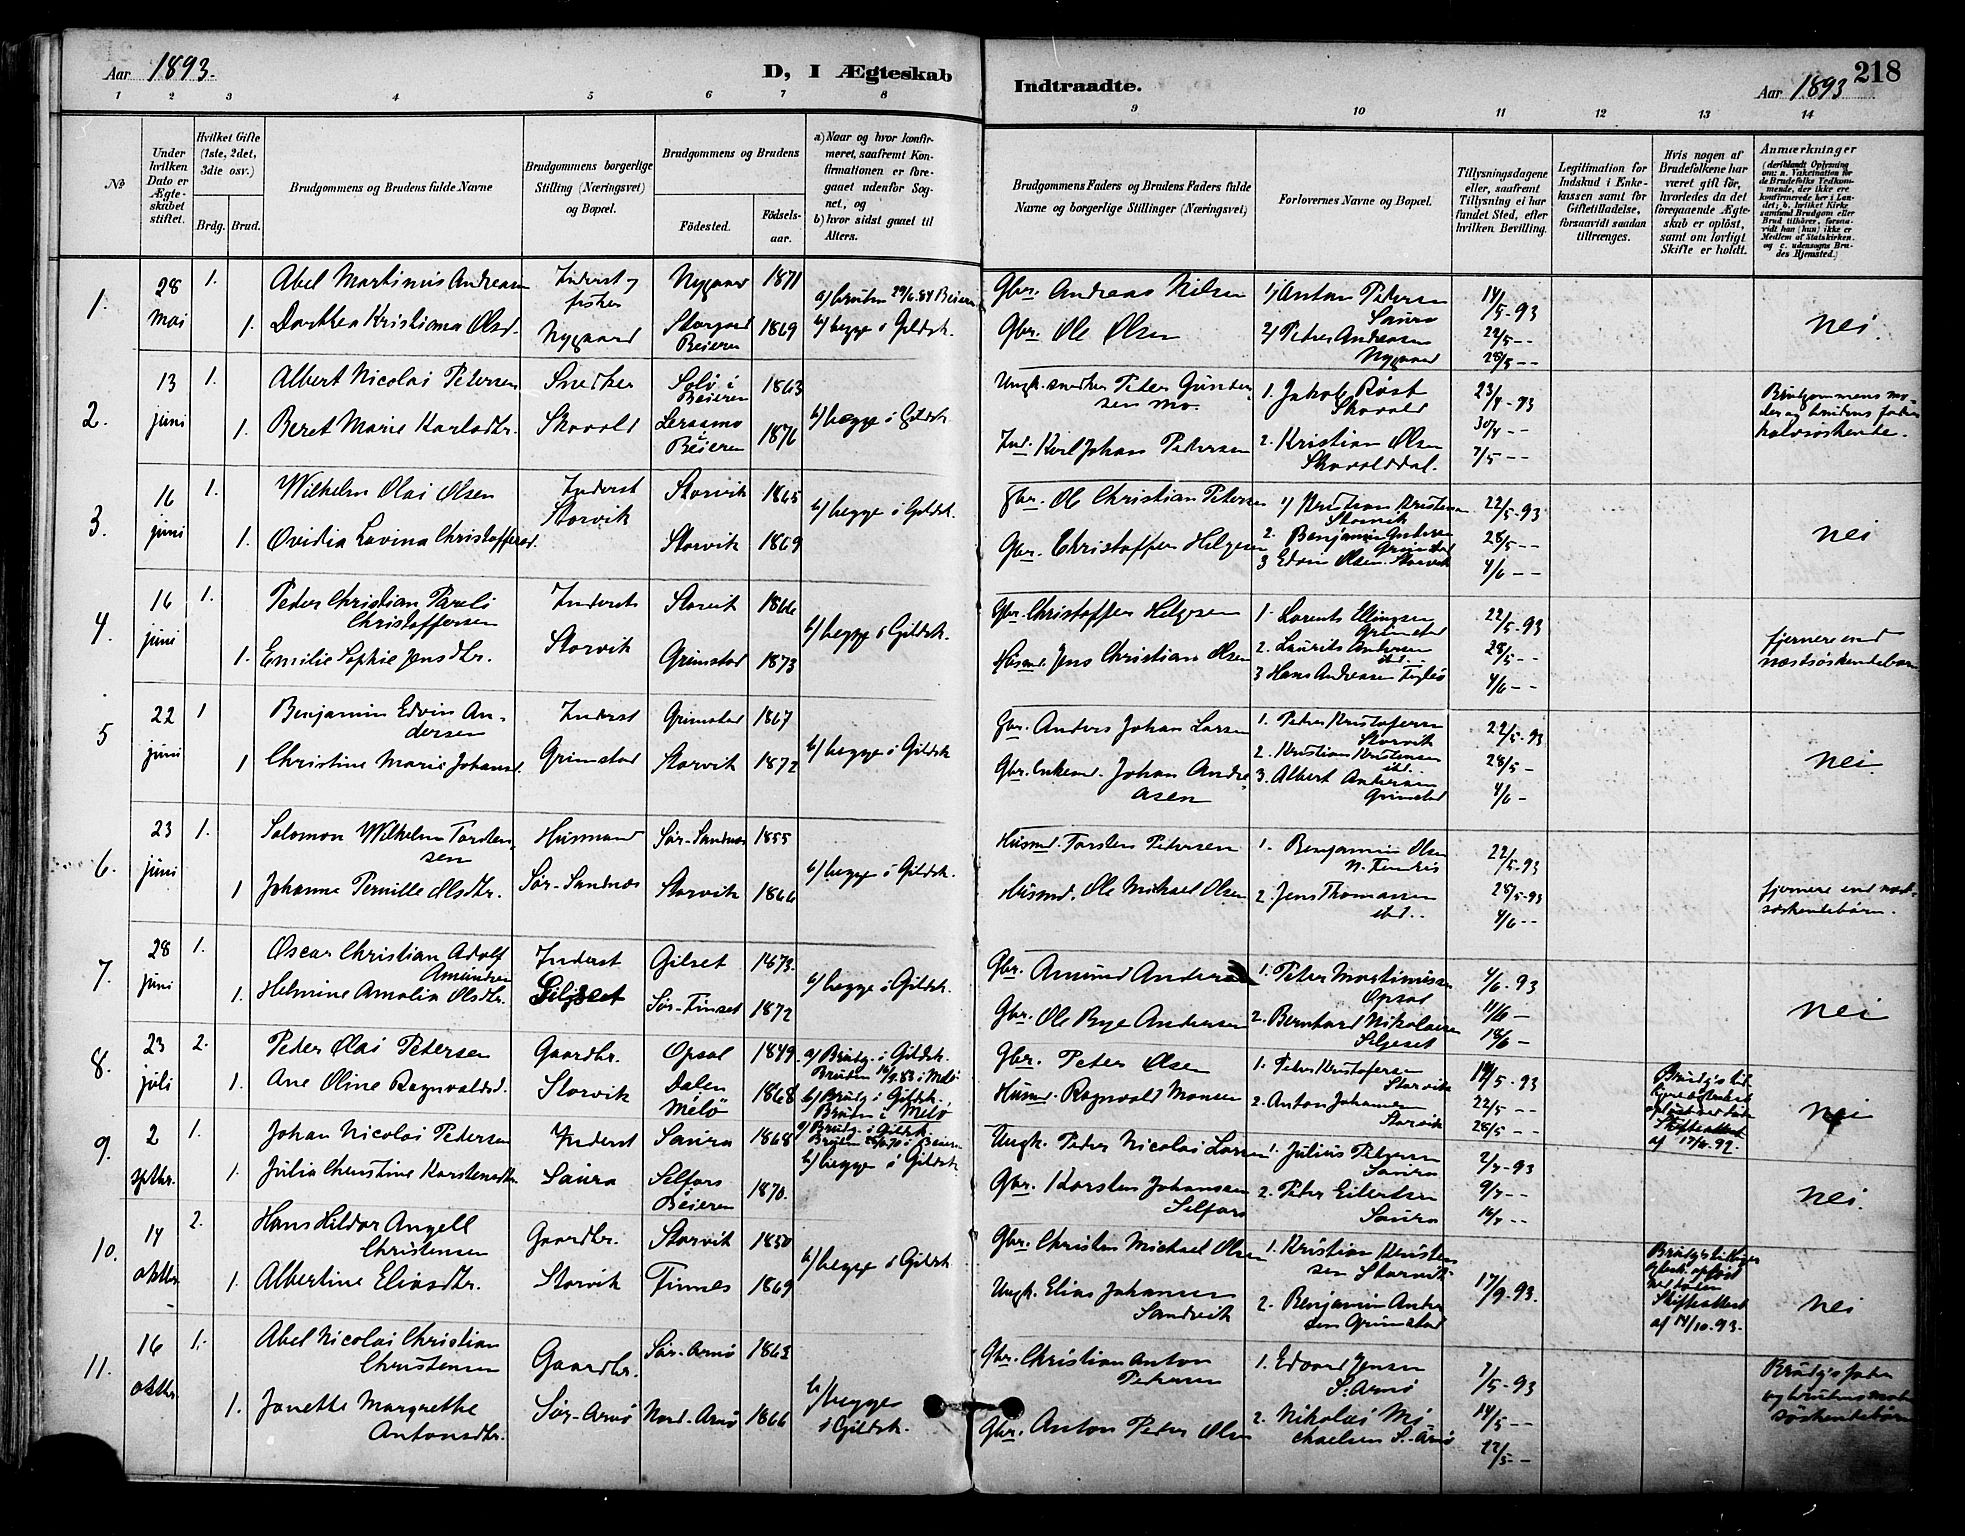 218
Aar 1893.
D, I Ægteskab
Indtraadte.
Aar 1893
1 2 3 4 5 6 7 8 9 10 11 12 13 14
No
Under hvilken Dato er Ægteskabet stiftet.
Hvilket Gifte (1ste, 2det, 3die osv.)
Brdg. Brud.
Brudgommens og Brudens fulde Navne
Brudgommens borgerlige Stilling (Næringsvei) og Bopæl.
Brudgommens og Brudens
Fødested.
Fødselsaar.
a) Naar og hvor konfirmeret, saafremt Konfirmationen er foregaaet udenfor Sognet, og
b) hvor sidst gaaet til Alters.
Brudgommens Faders og Brudens Faders fulde Navne og borgerlige Stillinger (Næringsvei)
Forlovernes Navne og Bopæl.
Tillysningsdagene eller, saafremt Tillysning ei har fundet Sted, efter hvilken Bevilling.
Legitimation for Indskud i Enkekassen samt for Giftetilladelse, forsaavidt saadan tiltrænges.
Hvis nogen af Brudefolkene har været gift før, hvorledes da det foregaaende Ægteskab er opløst, samt om lovligt Skifte er holdt.
Anmærkninger
(deriblandt Oplysning om: a. Vakcination for de Brudefolks Vedkommende, der ikke ere konfirmerede her i Landet; b. hvilket Kirkesamfund Brudgom eller Brud tilhører, forsaavidt han (hun) ikke er Medlem af Statskirken, og c. udensogns Brudes Hjemsted.)
1. 28 mai 1. Abel Martinus Andreasen Inderst og fisker Nygaard 1871 a) bruden 29/6.84 Beieren
1. Dorthea Kristiana Olsd. Nygaard Storgaard Beieren 1869 b) begge i Gildsk.
Gbr. Andreas Nilsen 1) Anton Petersen Saura 14/5-93
Gbr. Ole Olsen 2) Peder Andreasen Nygaard 22/5-- 28/5-- nei.
2. 13 juni 1. Albert Nicolai Petersen Snedker Solø i Beieren 1863
1. Beret Marie Karlsdtr. Skavold Beieren 1876 b) begge i Gildsk.
Ungk. snedker Peder mo. 1. Jakob Røst Skavold 23/4-93
Ind. Karl Johan Pedersen 2. Kristian Olsen Skavolddal. 30/4-- 7/5-- Brudgommens moder og brudens fader halvsøskende.
3. 16 juni 1. Wilhelm Olai Olsen Inderst Storvik Storvik 1865
1. Ovidia Lavina Christoffersd. Storvik 1869 b) begge i Gildsk.
Gbr. Ole Christian Petersen 1) Kristian Kristensen Storvik 22/5-93
Gbr. Christoffer Helgesen 2. Benjamin Andersen Grimstad 28/5--
3 Edvin Olsen Storvik 4/6-- nei
4. 16 juni 1. Peder Christian Pareli Christoffersen Inderst Storvik 1866
1. Emilie Sophie Jensdtr. Storvik Grimstad 1873 b) begge i Gildsk.
Gbr. Christoffer Helgesen 1. Lorents Ellingsen Grimstad 22/5-93
Husmd. Jens Christian Olsen 2. Laurits Andersen ibd. 28/5--
3 Hans Andreasen 4/6-- fjernere end næstsøskendebørn
5 22 juni 1 Benjamin Edvin Andersen Inderst Grimstad 1867
1 Christine Marie Johansd. Grimstad Storvik 1872 b) begge i Gildsk
Gbr. Anders Johan Larsen 1. Peder Kristofersen Storvik 22/5-93
Gbr. Enkemd. Johan Andreasen 2. Kristian Kristensen ibd. 28/5-
3. Albert Andersen Grimstad 4/6- nei.
6. 23 juni 1. Salomon Wilhelm Torstensen Husmand Sør-Sandnes 1855
1 Johanna Pernille Olsdtr. Sør-Sandnæs Storvik 1866 b) begge i Gildsk.
Husmd. Torsten Pedersen 1. Benjamin Olsen 22/5-93
Husmd. Ole Mikael Olsen 2. Jens Thomassen ibd.. 28/5-93 4/6-- fjernere end næstsøskendebørn.
7. 28 juni 1. Oscar Christian Adolf Amundsen Inderst Gilset 1873.
1. Helmine Amalia Olsdtr. Giljeset Sør-Finset 1872 b) begge i Gildsk.
Gbr. Amund Andersen 1. Peter Martinussen Opsal 4/6-93
Gbr. Ole Bye Andersen 2. Bernhard Nikolaisen Seljeset 11/6- 18/6- nei
8. 23 juli 2. Peder Olai Petersen Gaardbr. Opsal 1849. a) Brudg. i Gildsk. Bruden 16/9.83 i Melø
1. Ane Oline Ragnvaldsd. Storvik Dalen Melö 1868 b) Brudg i Gildsk. Bruden i Melö
Gbr. Peter Olsen 1. Peder Kristofersen Storvik 14/5-93
Husmd. Ragnvald Monsen 2. Anton Johansen Storvik 22/5-- 28/5-- af 17/10.92. nei
9. 2 sptbr. 1. Johan Nicolai Pedersen Inderst Saura 1868 a) Brudg. i Gildsk.
1. Julia Christine Karstensdtr. Saura Selfors Beieren 1870. b) begge i Gildsk.
Ungk. Peder Nicolai Larsen 1. Julius Petersen Saura 2/7-93
Gbr. Karsten Johansen Selfors 2. Peter Eilertsen Saura 9/7-- 16/7-- nei.
10. 14 oktbr. 2. Hans Hildor Angell Christensen Gaardbr. Storvik 1850
1. Albertine Eliasdtr. Storvik Finnes 1869 b) begge i Gildsk.
Gbr. Christen Michael Olsen 1. Kristian Kristensen Storvik 17/9-93.
Ungk. Elias Johansen Sandvik 2. Benjamin Andersen Grimstad
opløst ved døden Skifteattest af 14/10.93. nei
11. 16 oktbr. 1. Abel Nicolai Christian Christensen Gaardbr. Sør-Arnø 1863
1. Janette Margrethe Antonsdtr. Sør-Arnø Nord-Arnø 1866 b) begge i Gildsk.
Gbr. Christian Anton Pedersen 1. Edvard Jensen S. Arnø 7/5-93
Gbr. Anton Peder Olsen 2. Nikolai Michaelsen S. Arnø 14/5-- 22/5-- Brudg's fader og brudens moder söskendebörn